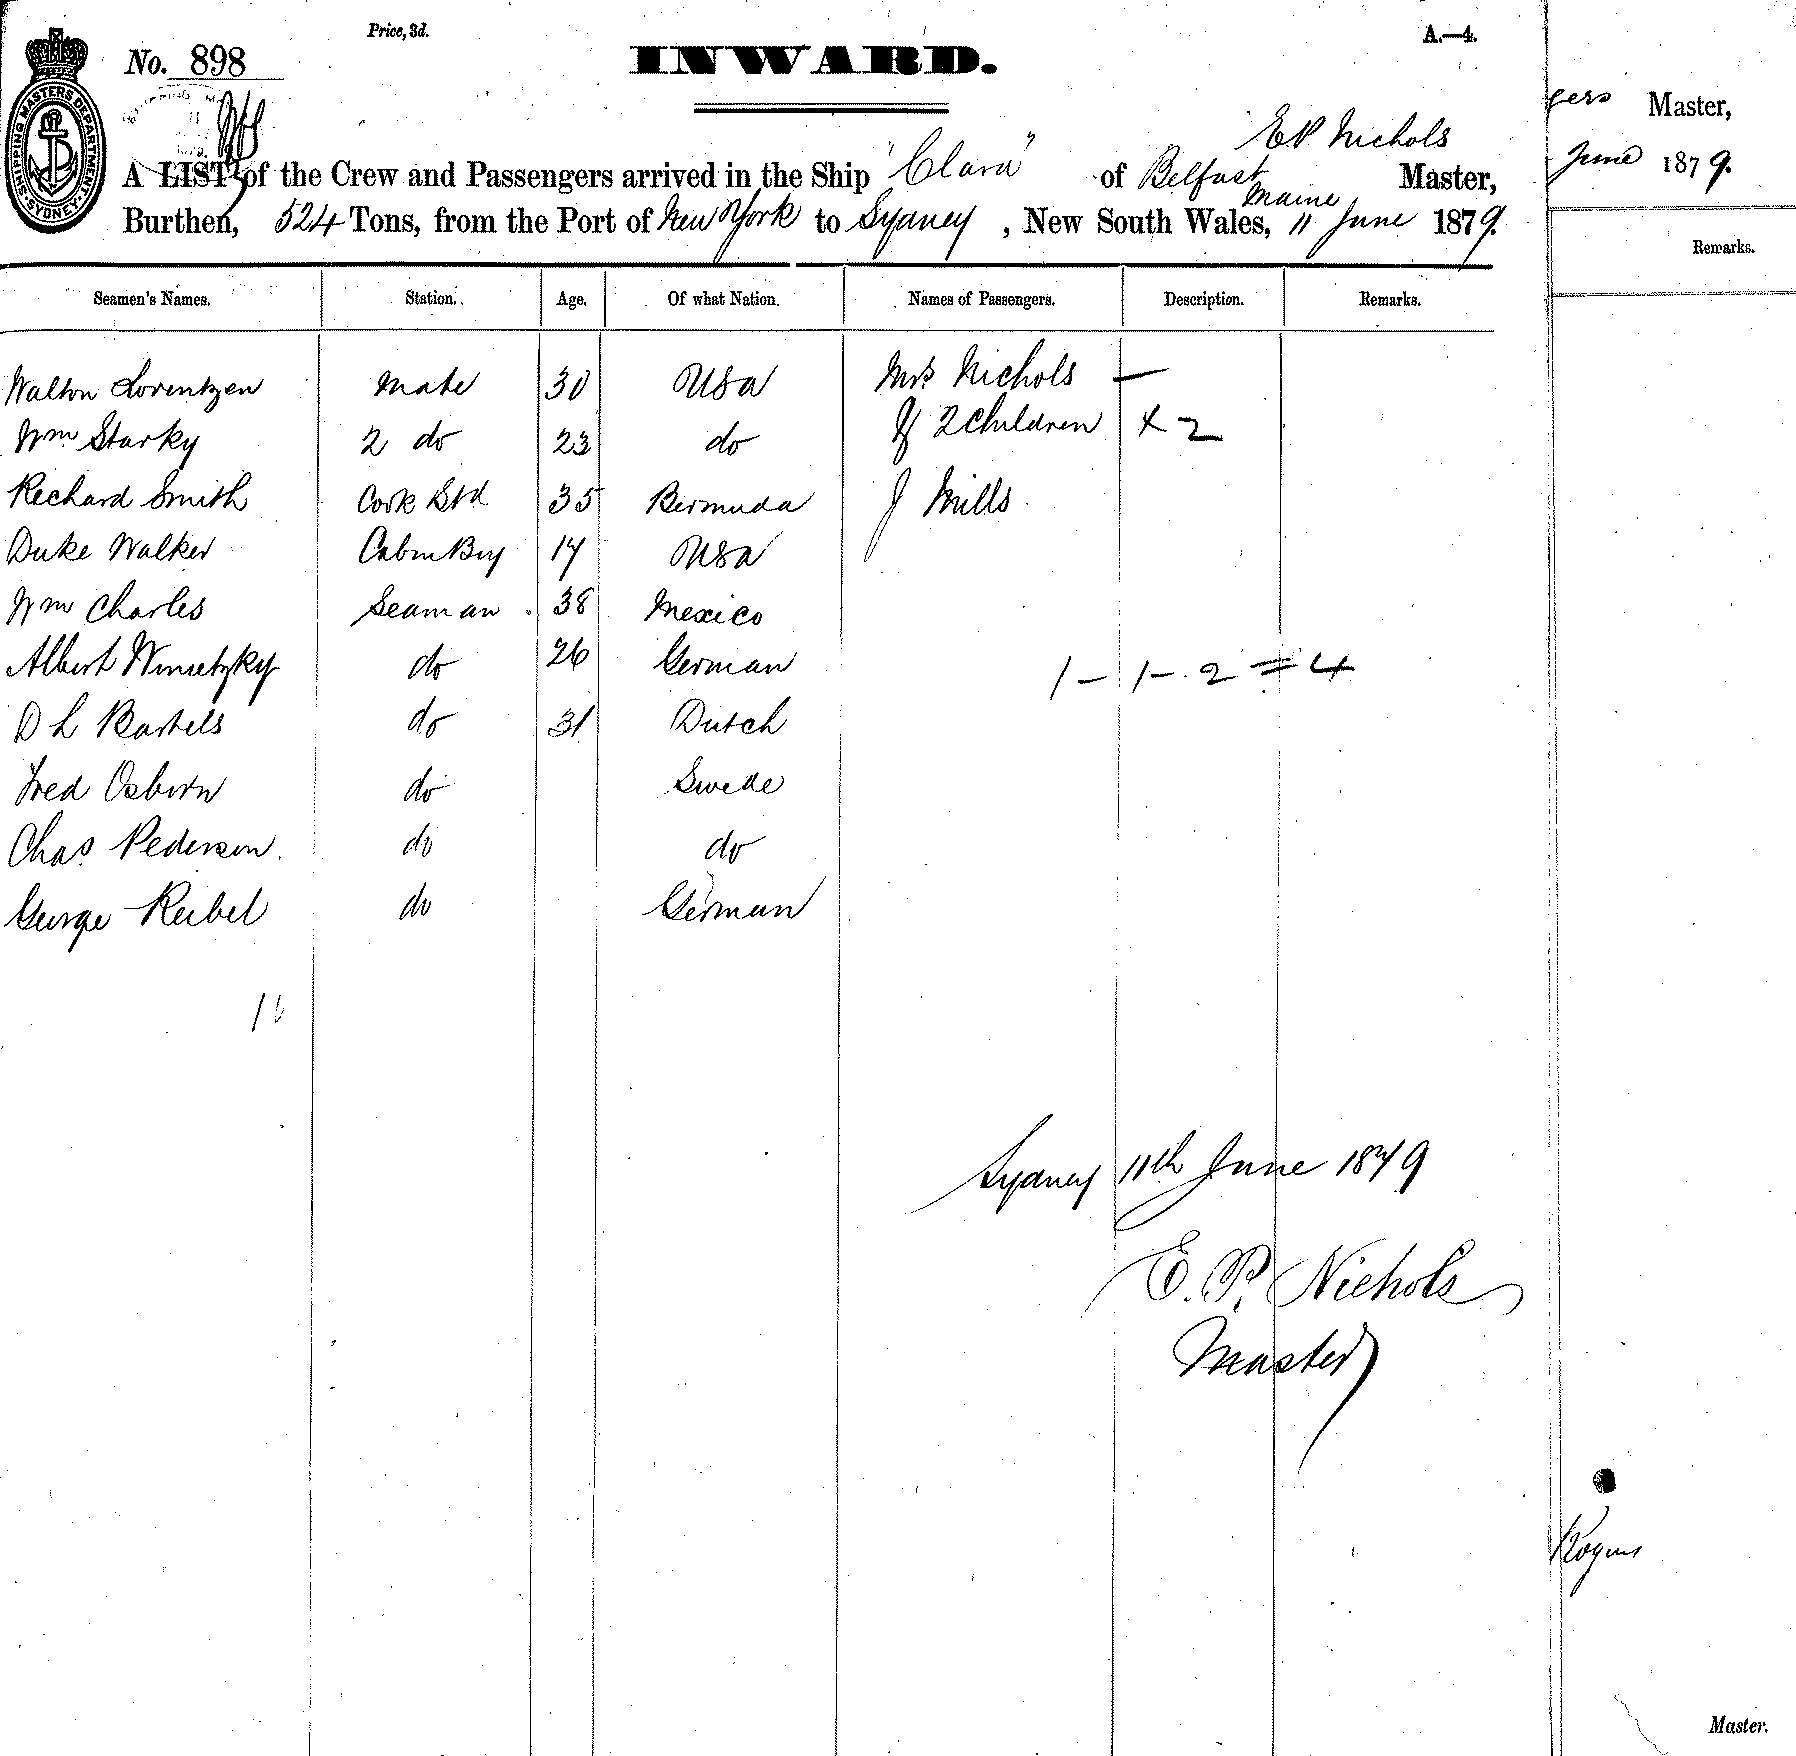 Price, 3d.
A.—4.
No. 898
INWARD.
SHIPPING MASTERS DEPARTMENT
SYDNEY
E P Nichols
A LIST of the Crew and Passengers arrived in the Ship "Clara" of Belfast Maine Master,
Burthen, 524 Tons, from the Port of New York to Sydney, New South Wales, 11 June 1879.
Seamen's Names. Station. Age. Of what Nation. Names of Passengers. Description. Remarks.
Walton Lorentzen Mate 30 USA Mrs Nichols —
Wm Starky 2 do 23 do & 2 Children × 2
Richard Smith Cook Std 35 Bermuda J Mills
Duke Walker Cabin Boy 17 USA
Wm Charles Seaman 38 Mexico
Albert do 26 German 1 - 1 - 2 = 4
D L Bartels do 31 Dutch
Fred Osborn do Swede
Chas Pedersen do do
George Reibel do German
Sydney 11th June 1879
E. P. Nichols
Master
gers Master,
June 1879.
Remarks.
Rogers
Master.